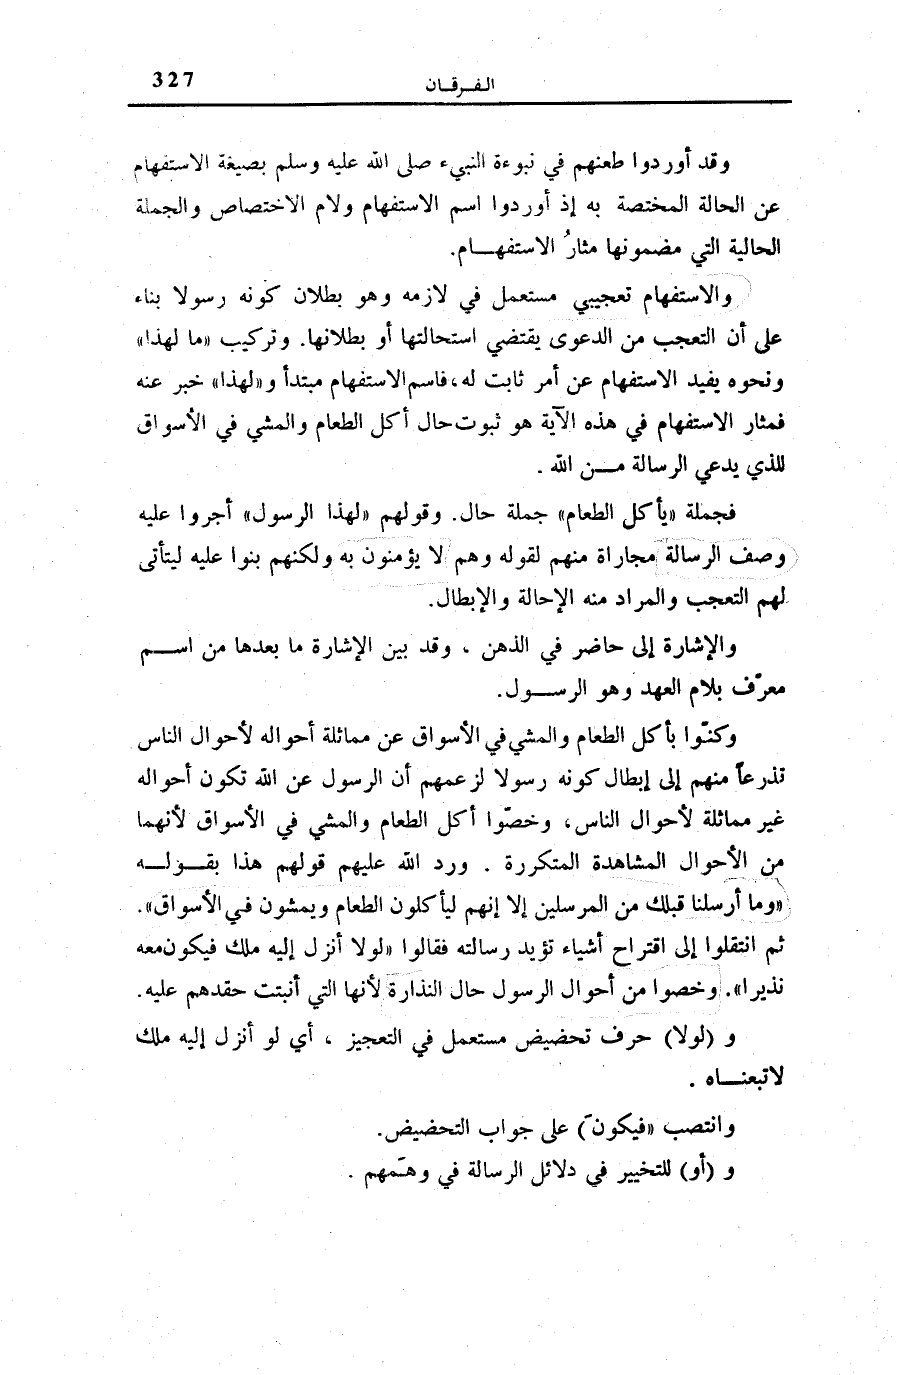 الفرقان
327
وقد أوردوا طعنهم في نبوءة النبيء صلى الله عليه وسلم بصيغة الاستفهام
عن الحالة المختصة به إذ أوردوا اسم الاستفهام ولام الاختصاص والجملة
الحالية التي مضمونها مثارُ الاستفهــام.
والاستفهام تعجيبي مستعمل في لازمه وهو بطلان كونه رسولا بناء
على أن التعجب من الدعوى يقتضي استحالتها أو بطلانها. وتركيب «ما لهذا»
ونحوه يفيد الاستفهام عن أمر ثابت له، فاسم الاستفهام مبتدأ و«لهذا» خبر عنه
فمثار الاستفهام في هذه الآية هو ثبوت حال أكل الطعام والمشي في الأسواق
للذي يدعي الرسالة مــن الله .
فجملة «يأكل الطعام» جملة حال. وقولهم «لهذا الرسول» أجروا عليه
وصف الرسالة مجاراة منهم لقوله وهم لا يؤمنون به ولكنهم بنوا عليه ليتأتى
لهم التعجب والمراد منه الإحالة والإبطال.
والإشارة إلى حاضر في الذهن ، وقد بين الإشارة ما بعدها من اســم
معرّف بلام العهد وهو الرســول.
وكنّوا بأكل الطعام والمشي في الأسواق عن مماثلة أحواله لأحوال الناس
تذرعاً منهم إلى إبطال كونه رسولا لزعمهم أن الرسول عن الله تكون أحواله
غير مماثلة لأحوال الناس، وخصّوا أكل الطعام والمشي في الأسواق لأنهما
من الأحوال المشاهدة المتكررة . ورد الله عليهم قولهم هذا بقــولــه
«وما أرسلنا قبلك من المرسلين إلا إنهم ليأكلون الطعام ويمشون في الأسواق».
ثم انتقلوا إلى اقتراح أشياء تؤيد رسالته فقالوا «لولا أنزل إليه ملك فيكون معه
نذيرا». وخصوا من أحوال الرسول حال النذارة لأنها التي أنبتت حقدهم عليه.
و (لولا) حرف تحضيض مستعمل في التعجيز ، أي لو أنزل إليه ملك
لاتبعنــاه .
وانتصب «فيكونَ) على جواب التحضيض.
و (أو) للتخيير في دلائل الرسالة في وهَمهم .